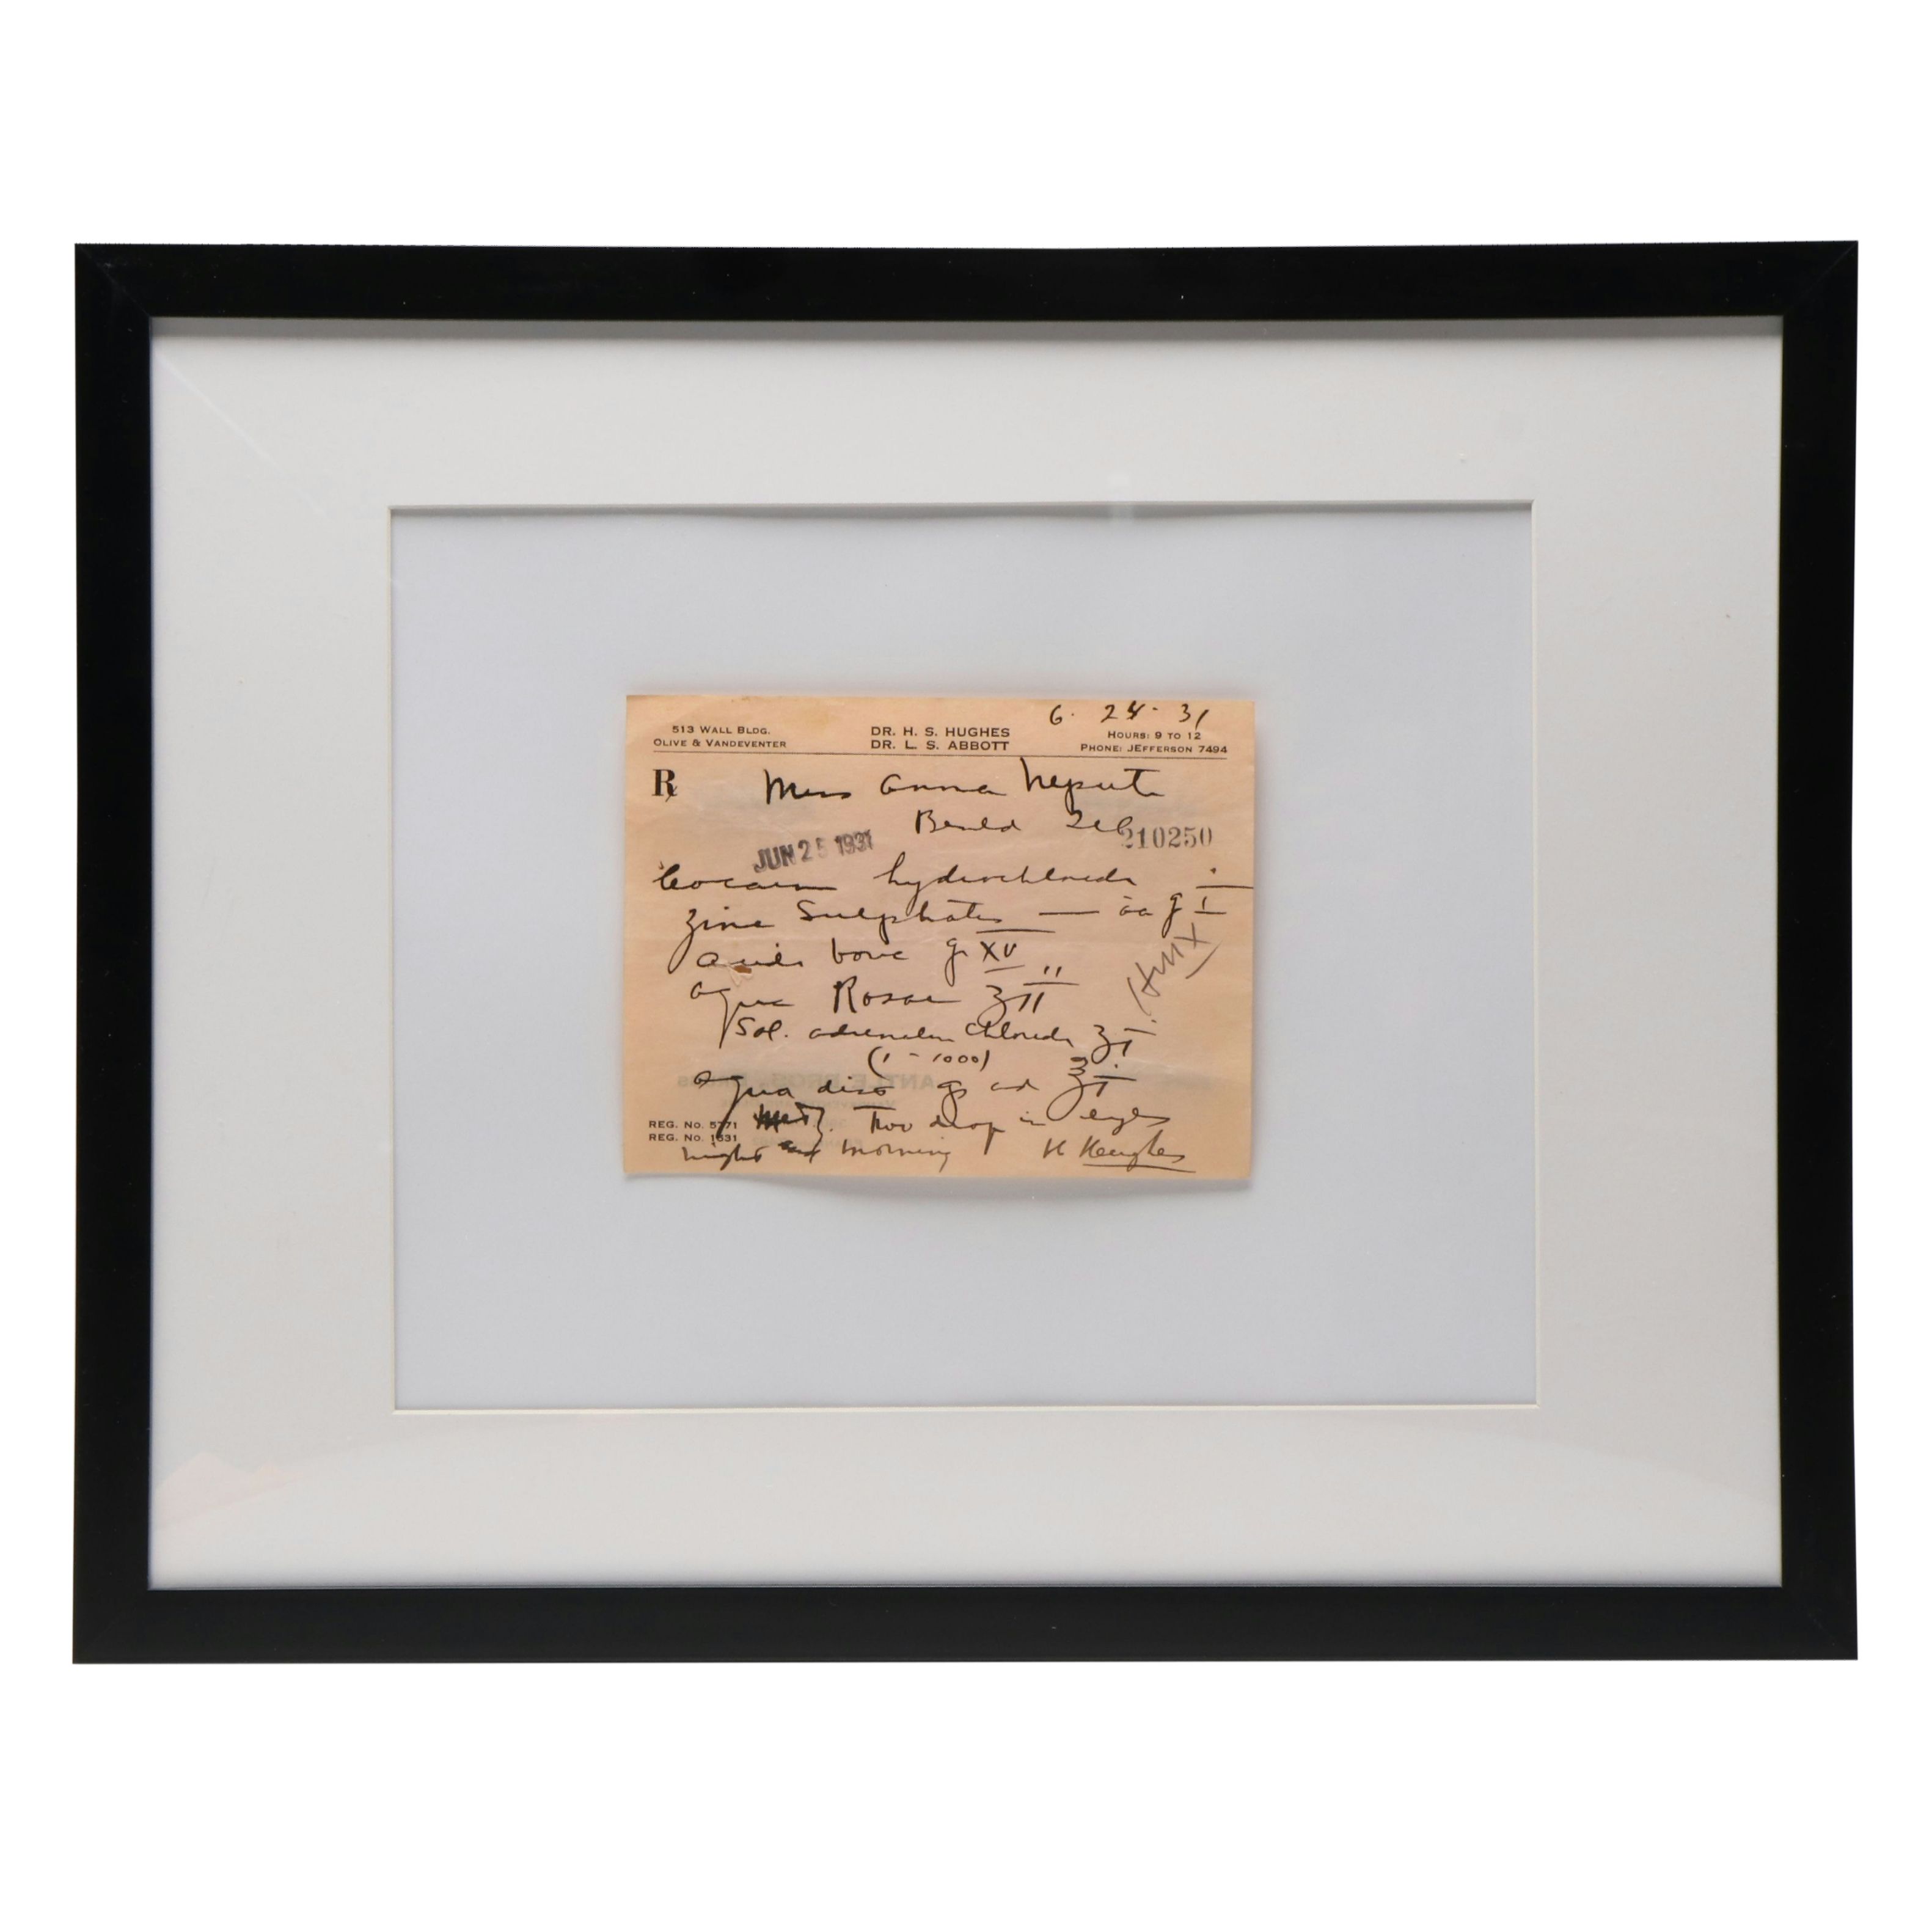 6 - 24 - 31
513 WALL BLDG. DR. H. S. HUGHES HOURS: 9 TO 12
OLIVE & VANDEVENTER DR. L. S. ABBOTT PHONE: JEFFERSON 7494
℞ Miss Anna Neput
Benld Ill 210250
JUN 25 1931
Cocain hydrochloride
Zinc Sulphate — āā gr I
acid boric gr XV
aqua Rosae ʒ II
Sol. adrenalin chloride ʒ I
(1 - 1000)
aqua dist qs ad ℥ I
REG. NO. 5771 Two drop in eyes
REG. NO. 1631
night and morning H Hughes